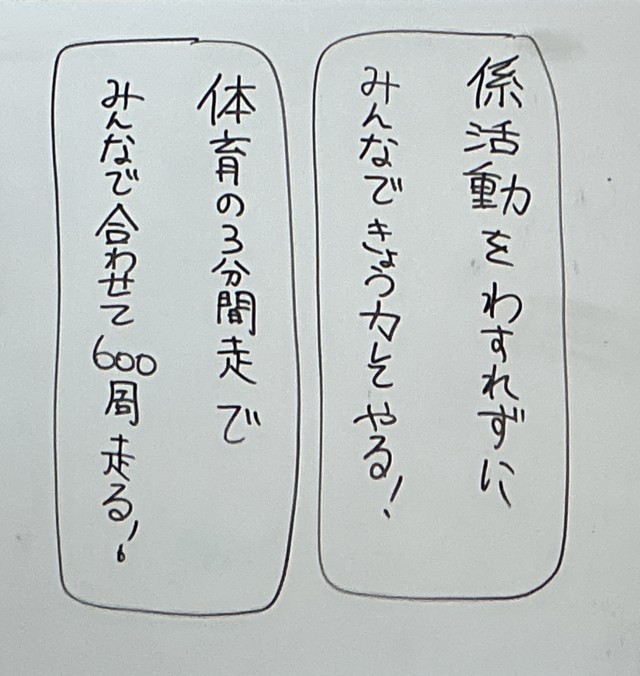 係活動をわすれずに
みんなできょう力してやる!
体育の3分間走で
みんなで合わせて600周走る!